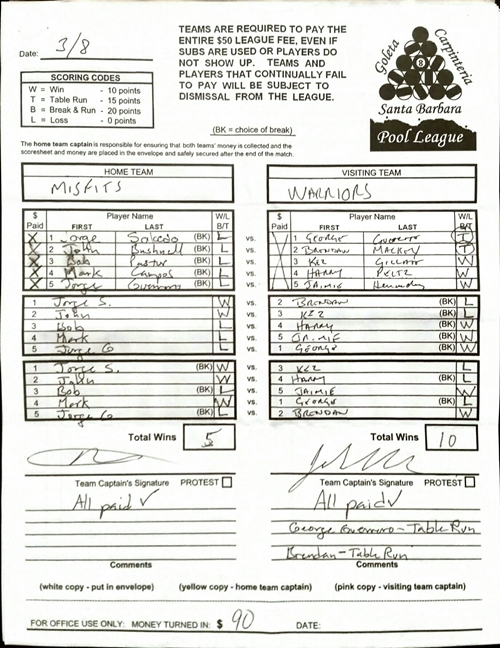 Date: 3/8
TEAMS ARE REQUIRED TO PAY THE
ENTIRE $50 LEAGUE FEE, EVEN IF
SUBS ARE USED OR PLAYERS DO
NOT SHOW UP. TEAMS AND
PLAYERS THAT CONTINUALLY FAIL
TO PAY WILL BE SUBJECT TO
DISMISSAL FROM THE LEAGUE.
(BK = choice of break)
SCORING CODES
W = Win - 10 points
T = Table Run - 15 points
B = Break & Run - 20 points
L = Loss - 0 points
Goleta Carpinteria
8
Santa Barbara
Pool League
The home team captain is responsible for ensuring that both teams' money is collected and the
scoresheet and money are placed in the envelope and safely secured after the end of the match.
HOME TEAM VISITING TEAM
MISFITS WARRIORS
$ Paid Player Name FIRST LAST W/L B/T $ Paid Player Name FIRST LAST W/L B/T
X 1 Jorge Salcedo (BK) L vs. 1 GEORGE T
X 2 John Bushnell (BK) L vs. 2 BRENDAN MACKEY T
X 3 Bob (BK) L vs. 3 KEZ GILLATT W
X 4 Mark Campos (BK) L vs. 4 HARRY PELTZ W
X 5 Jorge (BK) L vs. 5 JAIMIE W
1 Jorge S. W vs. 2 BRENDAN (BK) L
2 John W vs. 3 KEZ (BK) L
3 Bob L vs. 4 HARRY (BK) W
4 Mark L vs. 5 JAIMIE (BK) W
5 Jorge G L vs. 1 GEORGE (BK) W
1 Jorge S. (BK) W vs. 3 KEZ L
2 John W vs. 4 HARRY (BK) L
3 Bob (BK) L vs. 5 JAIMIE W
4 Mark W vs. 1 GEORGE (BK) L
5 Jorge G (BK) L vs. 2 BRENDAN W
Total Wins 5 Total Wins 10
Team Captain's Signature PROTEST Team Captain's Signature PROTEST
All paid All paid
George Guerrero - Table Run
Brendan - Table Run
Comments Comments
(white copy - put in envelope) (yellow copy - home team captain) (pink copy - visiting team captain)
FOR OFFICE USE ONLY: MONEY TURNED IN: $ 90 DATE: